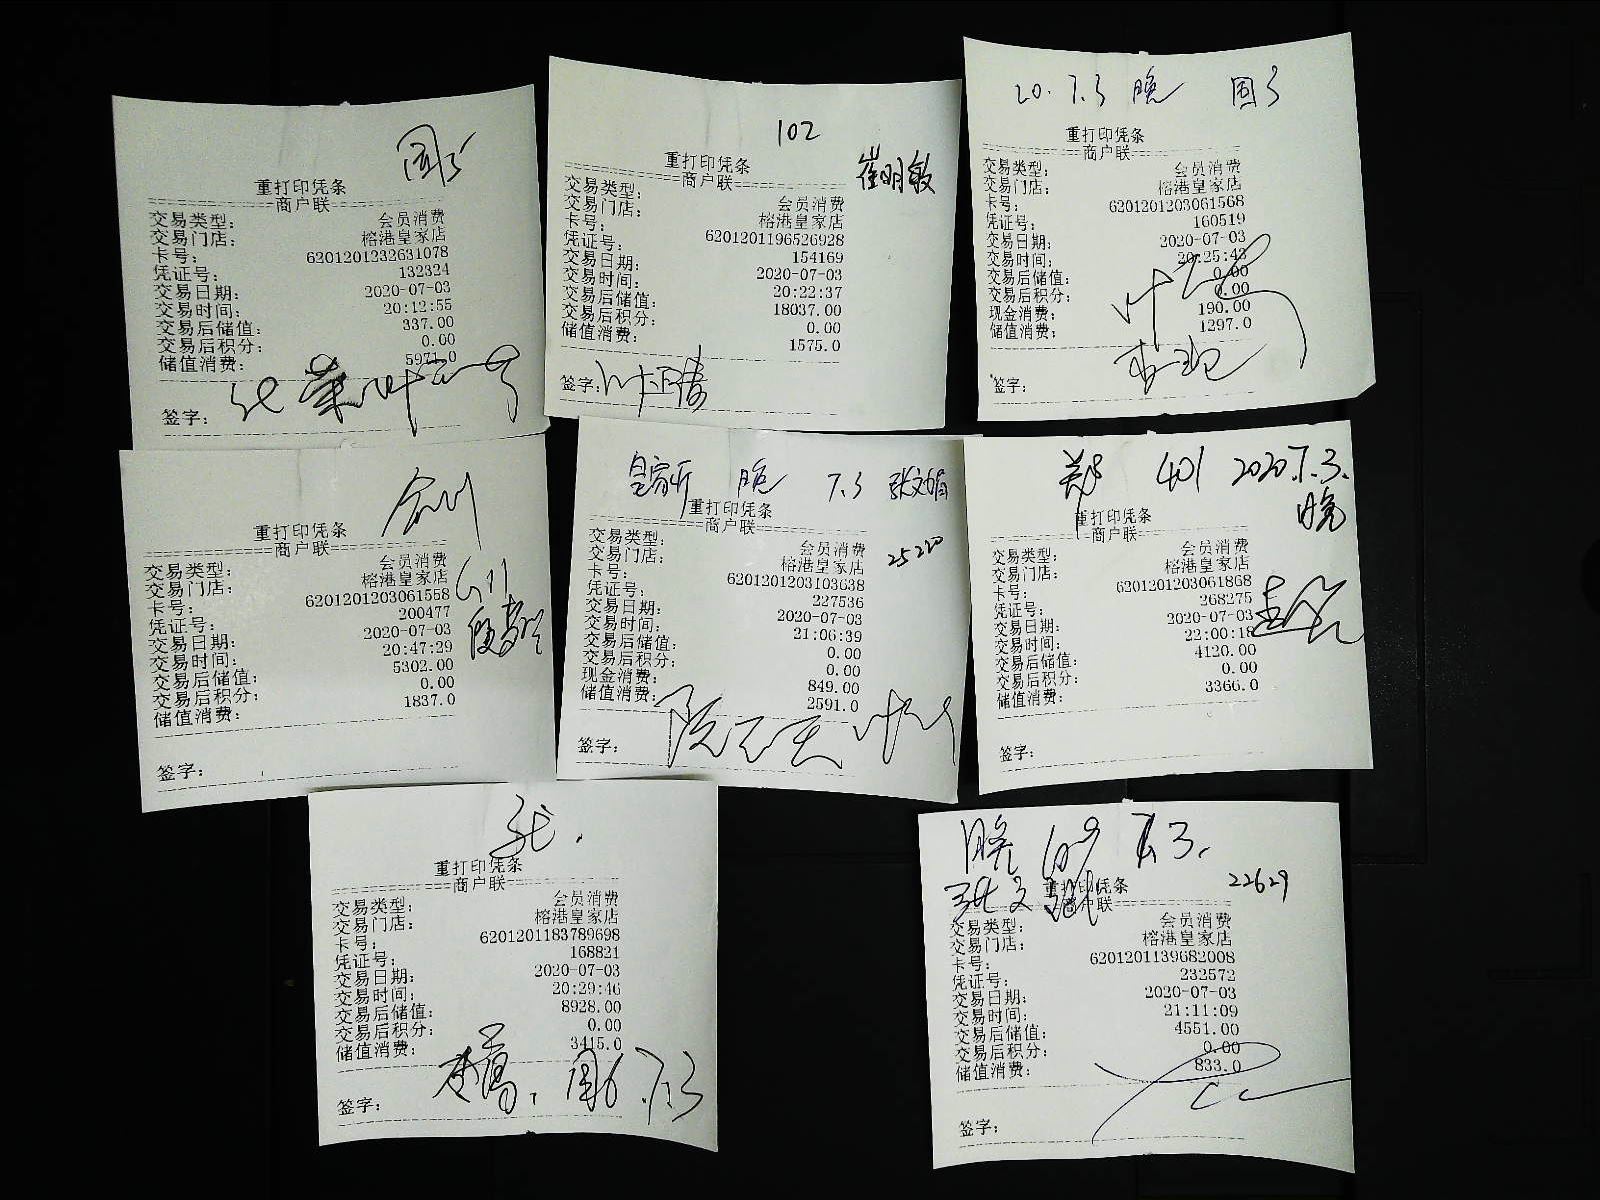 重打印凭条
商户联
交易类型： 会员消费
交易门店： 榕港皇家店
卡号： 6201201232631078
凭证号： 132324
交易日期： 2020-07-03
交易时间： 20:12:55
交易后储值： 337.00
交易后积分： 0.00
储值消费： 5971.0
签字：
102
崔明敏
重打印凭条
商户联
交易类型： 会员消费
交易门店： 榕港皇家店
卡号： 6201201196526928
凭证号： 154169
交易日期： 2020-07-03
交易时间： 20:22:37
交易后储值： 18037.00
交易后积分： 0.00
储值消费： 1575.0
签字：
20.7.3 晚
重打印凭条
商户联
交易类型： 会员消费
交易门店： 榕港皇家店
卡号： 6201201203061568
凭证号： 160519
交易日期： 2020-07-03
交易时间： 20:25:43
交易后储值： 0.00
交易后积分： 0.00
现金消费： 190.00
储值消费： 1297.0
签字：
重打印凭条
商户联
交易类型： 会员消费
交易门店： 榕港皇家店
卡号： 6201201203061558
凭证号： 200477
交易日期： 2020-07-03
交易时间： 20:47:29
交易后储值： 5302.00
交易后积分： 0.00
储值消费： 1837.0
签字：
皇家厅 晚 7.3 张文娟
重打印凭条
商户联
25220
交易类型： 会员消费
交易门店： 榕港皇家店
卡号： 6201201203103638
凭证号： 227536
交易日期： 2020-07-03
交易时间： 21:06:39
交易后储值： 0.00
交易后积分： 0.00
现金消费： 849.00
储值消费： 2591.0
签字：
郑 401 2020.7.3.
晚
重打印凭条
商户联
交易类型： 会员消费
交易门店： 榕港皇家店
卡号： 6201201203061868
凭证号： 268275
交易日期： 2020-07-03
交易时间： 22:00:18
交易后储值： 4120.00
交易后积分： 0.00
储值消费： 3366.0
签字：
张.
重打印凭条
商户联
交易类型： 会员消费
交易门店： 榕港皇家店
卡号： 6201201183789698
凭证号： 168821
交易日期： 2020-07-03
交易时间： 20:29:46
交易后储值： 8928.00
交易后积分： 0.00
储值消费： 3415.0
7.3
签字：
晚 609 7.3.
22629
重打印凭条
商户联
交易类型： 会员消费
交易门店： 榕港皇家店
卡号： 6201201139682008
凭证号： 232572
交易日期： 2020-07-03
交易时间： 21:11:09
交易后储值： 4551.00
交易后积分： 0.00
储值消费： 833.0
签字：